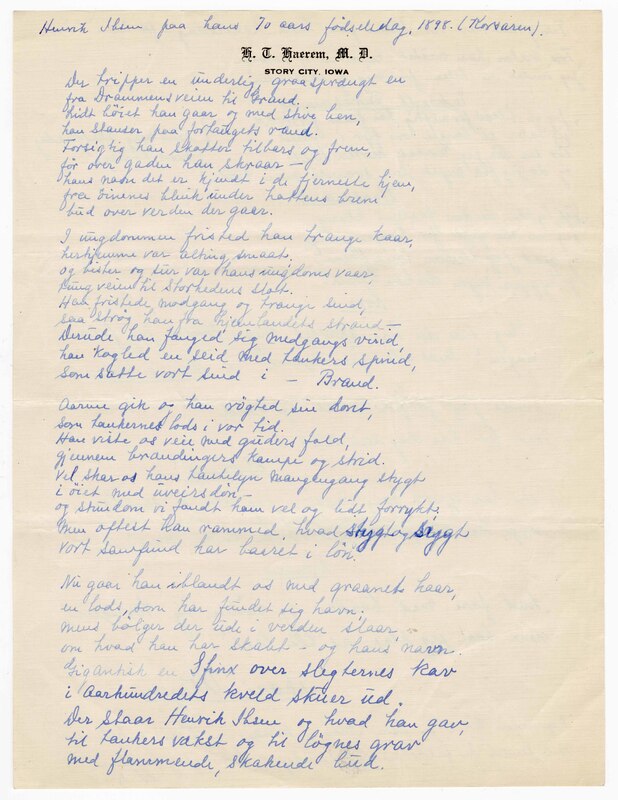 Henrik Ibsen paa hans 70 aars fødselsdag, 1898. (Korsaren).
H. T. Haerem, M. D.
STORY CITY, IOWA
Der tripper en underlig, graasprængt en
fra Drammensveien til Grand.
Lidt løiet han gaar og med stive ben,
han stanser paa fortaugets rand.
Forsigtig han skatter tilbars og frem,
før over gaden han skraar —
hans navn det er kjendt i de fjerneste hjem,
fra øinenes blink under hattens brem
bud over verden der gaar.
I ungdommen fristed han trange kaar,
herhjemme var alting smaat,
og bister og sur var hans ungdoms vaar,
tung veien til Storhedens slot.
Han fristede modgang og trange sind,
saa strøg han fra hjemlandets strand —
Derude han fanged sig medgangs vind,
han kogled en seid med tankers spind,
som satte vort sind i — Brand.
Aarene gik og han røgted sin dont,
som tankernes lods i vor tid.
Han viste os veie med guders fold,
gjennem brændingers kampe og strid.
Vel skar os hans tankelyn mangengang stygt
i øiet med uveirsdon,
og stundom vi fandt ham vel og lidt forrykt.
Men oftest han rammed, hvad stygt og sygt
vort samfund har baaret i løn.
Nu gaar han iblandt os med graanet haar,
en lods, som har fundet sig havn.
mens bølger der ude i verden slaar
om hvad han har skabt – og hans navn.
Gigantisk en Sfinx over slegternes kav
i Aarhundredets kveld skuer ud.
Der staar Henrik Ibsen og hvad han gav,
til tankers vækst og til løgnes grav
med flammende, skakende bud.